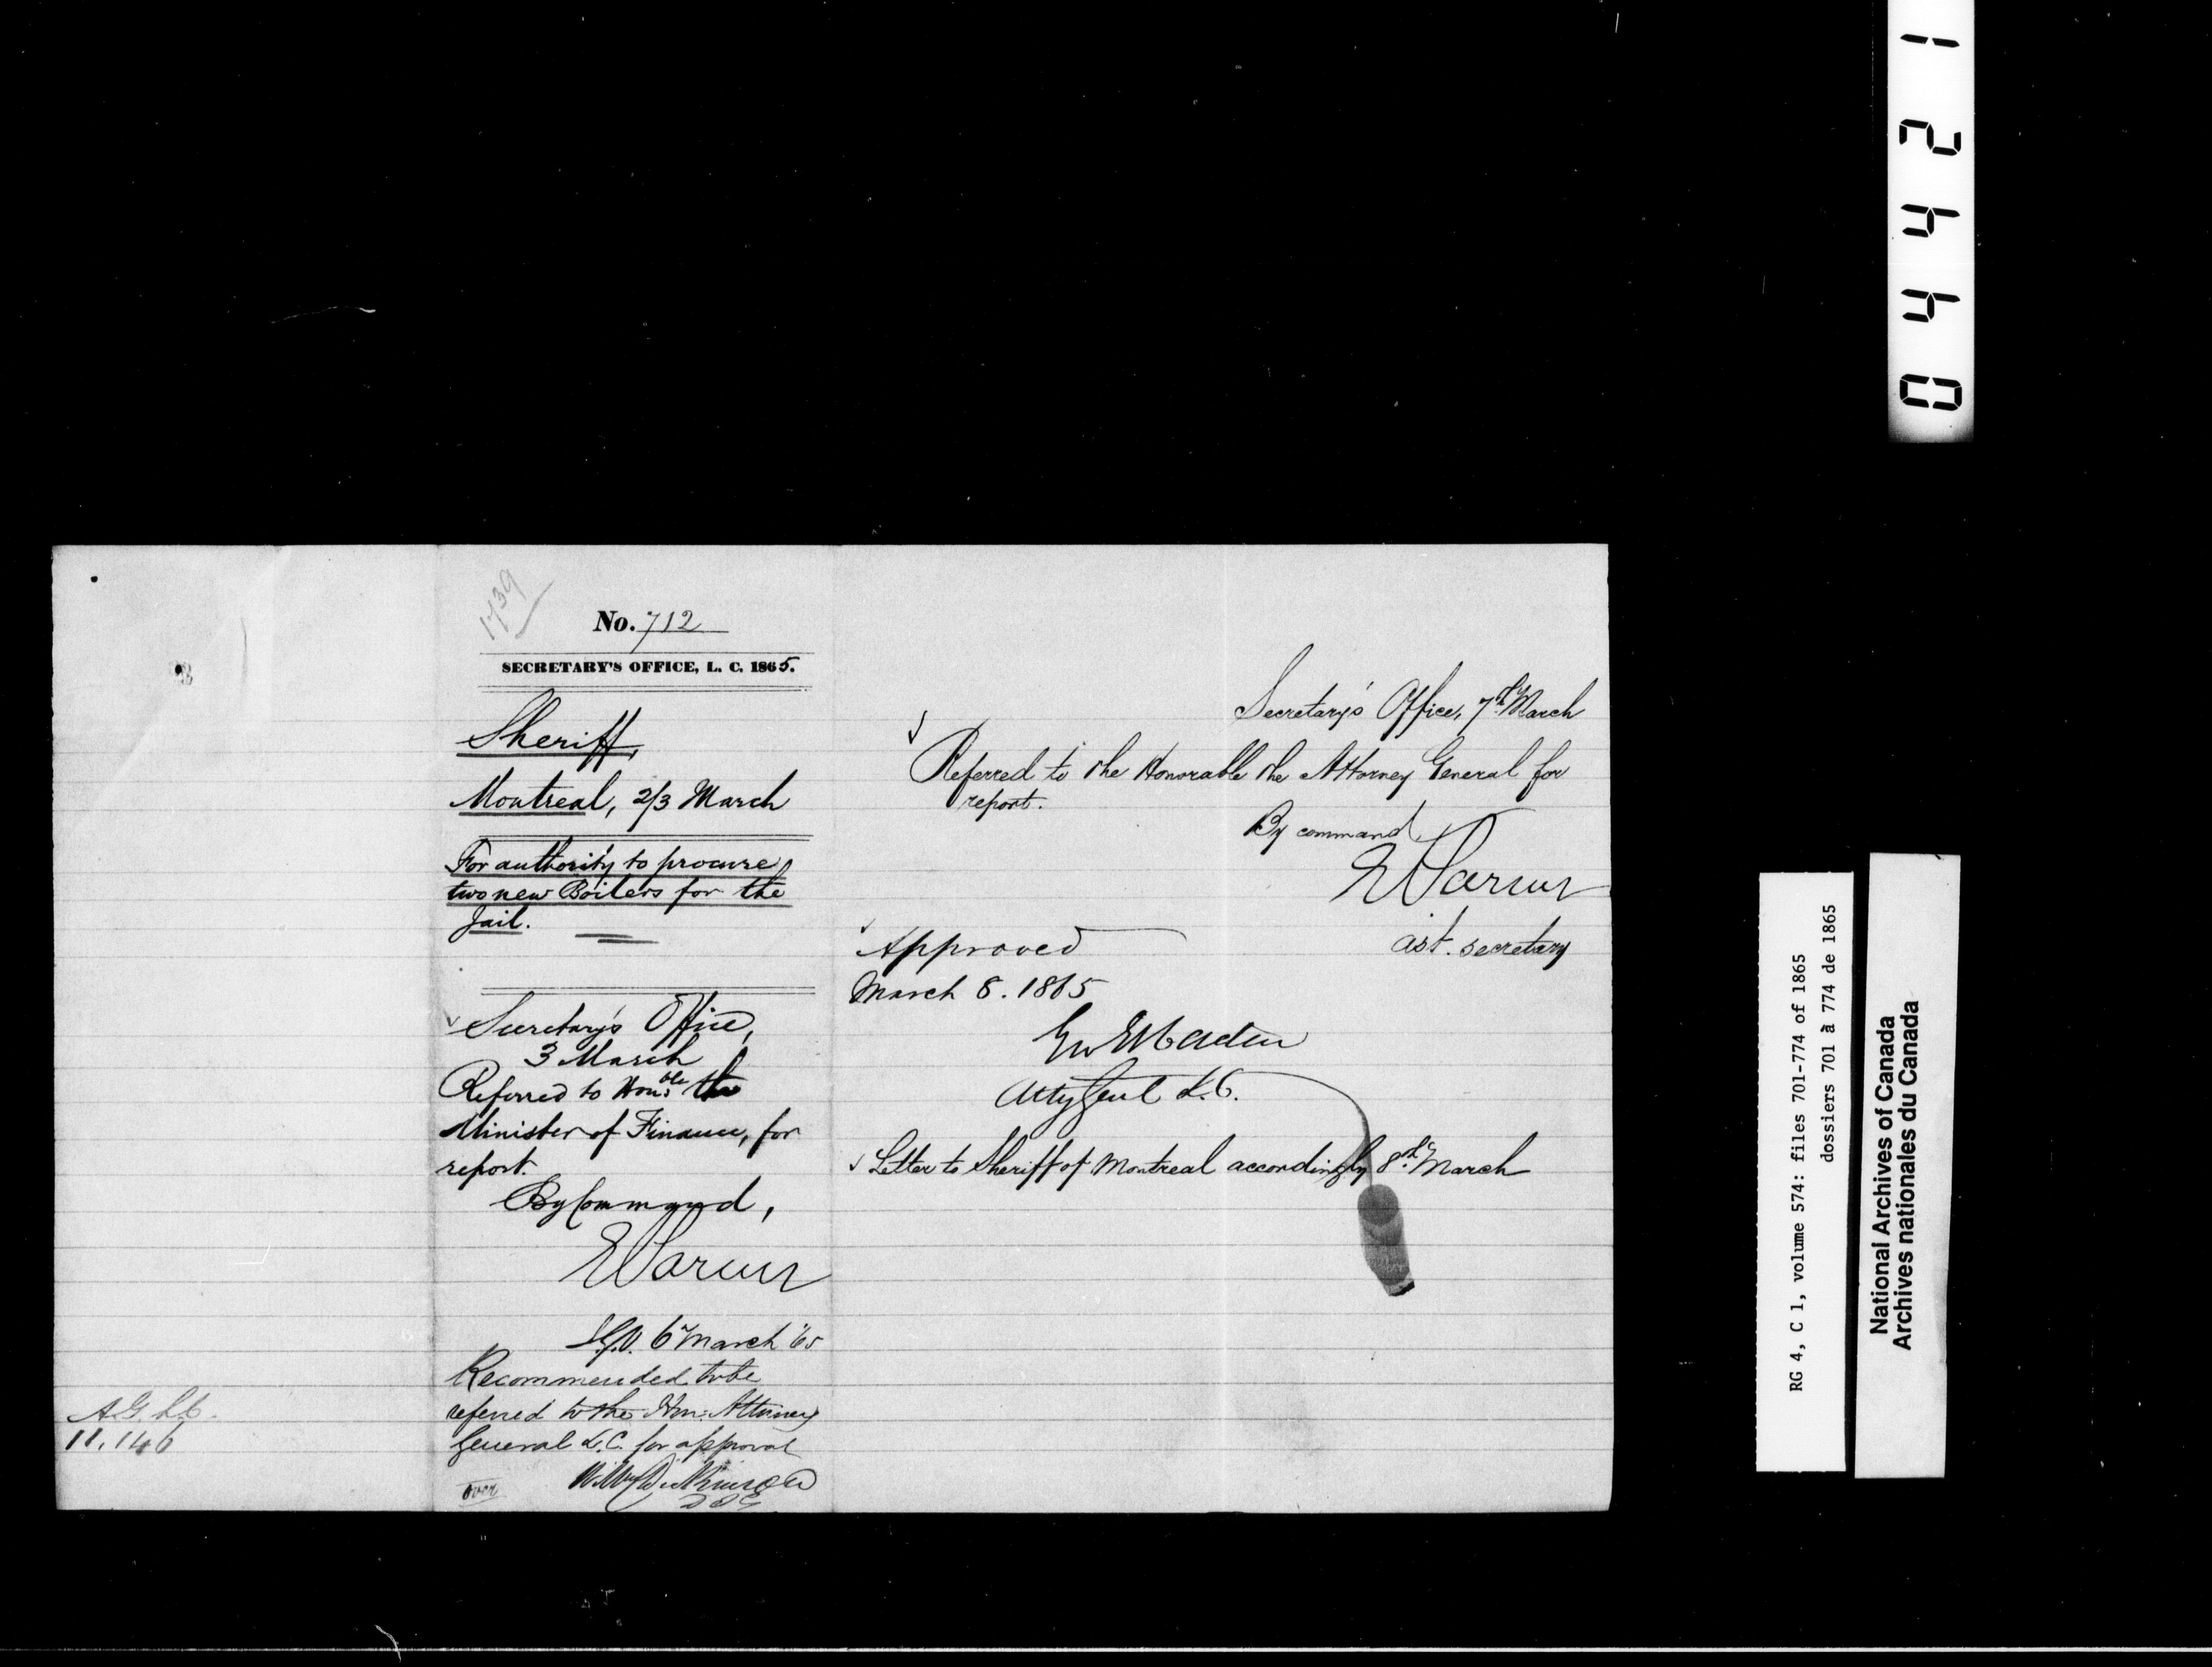 1739
No. 712
SECRETARY'S OFFICE, L. C. 1865.
Sheriff,
Montreal, 2/3 March
For authority to procure
two new Boilers for the
Jail.
Secretary's Office,
3 March
Referred to Honble the
Minister of Finance, for
report.
By Command,
6 March '65
Recommended to be
referred to the Hon: Attorney
General L.C. for approval
over
A.G. L.C.
11.146
Secretary's Office, 7th March
Referred to the Honorable the Attorney General for
report.
By command
ast. secretary
Approved
March 8. 1865
Atty Genl L.C.
Letter to Sheriff of Montreal accordingly 8th March
04421
RG 4, C 1, volume 574: files 701-774 of 1865
dossiers 701 à 774 de 1865
National Archives of Canada
Archives nationales du Canada